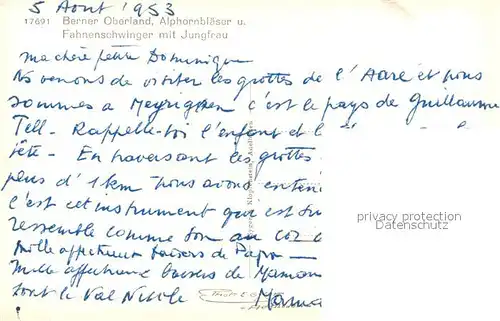 5 Aout 1953
17691 Berner Oberland, Alphornbläser u.
Fahnenschwinger mit Jungfrau
ma chère petite Dominique
Nous venons de visiter les grottes de l'Aare et nous
sommes a Meyringen c'est le pays de Guillaume
Tell - Rappelle-toi l'enfant et l
tête - En traversant les grottes
plus d'1 km nous avons enten
c'est cet instrument qui est su
ressemble comme son au cor
privacy protection
Datenschutz
Mille affectueux baisers de Papa -
Mille affectueux baisers de Maman
tout le Val
Mama